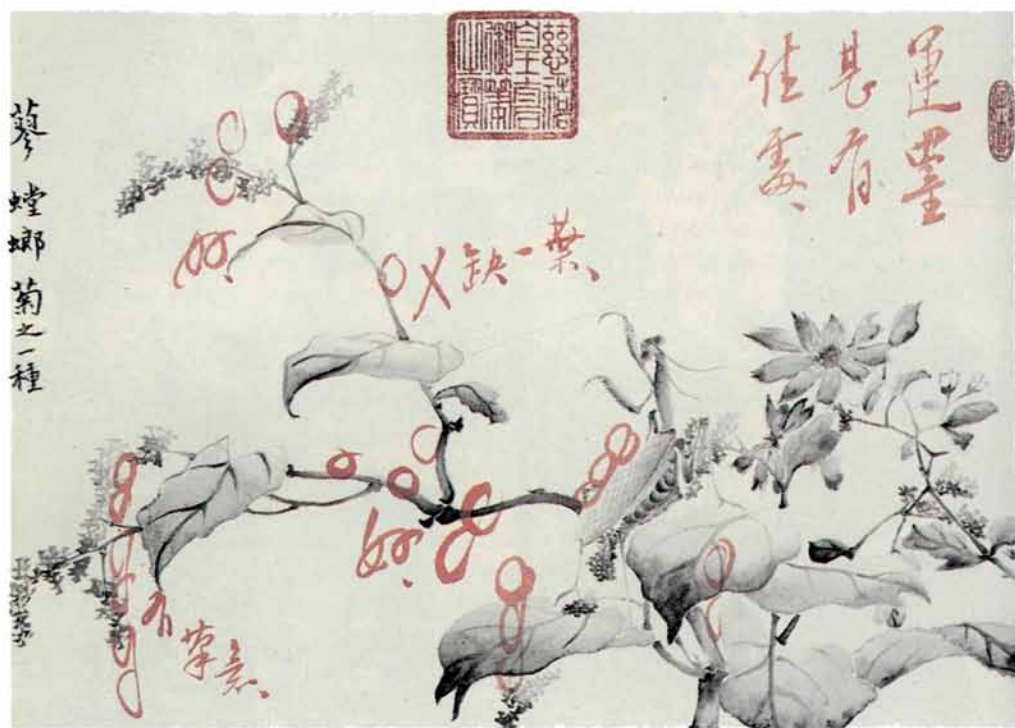 運墨
甚有
佳處、
慈禧
皇太后
御筆
之寶
缺一葉、
妙、
妙、
有筆意、
蓼 螳螂 菊之一種